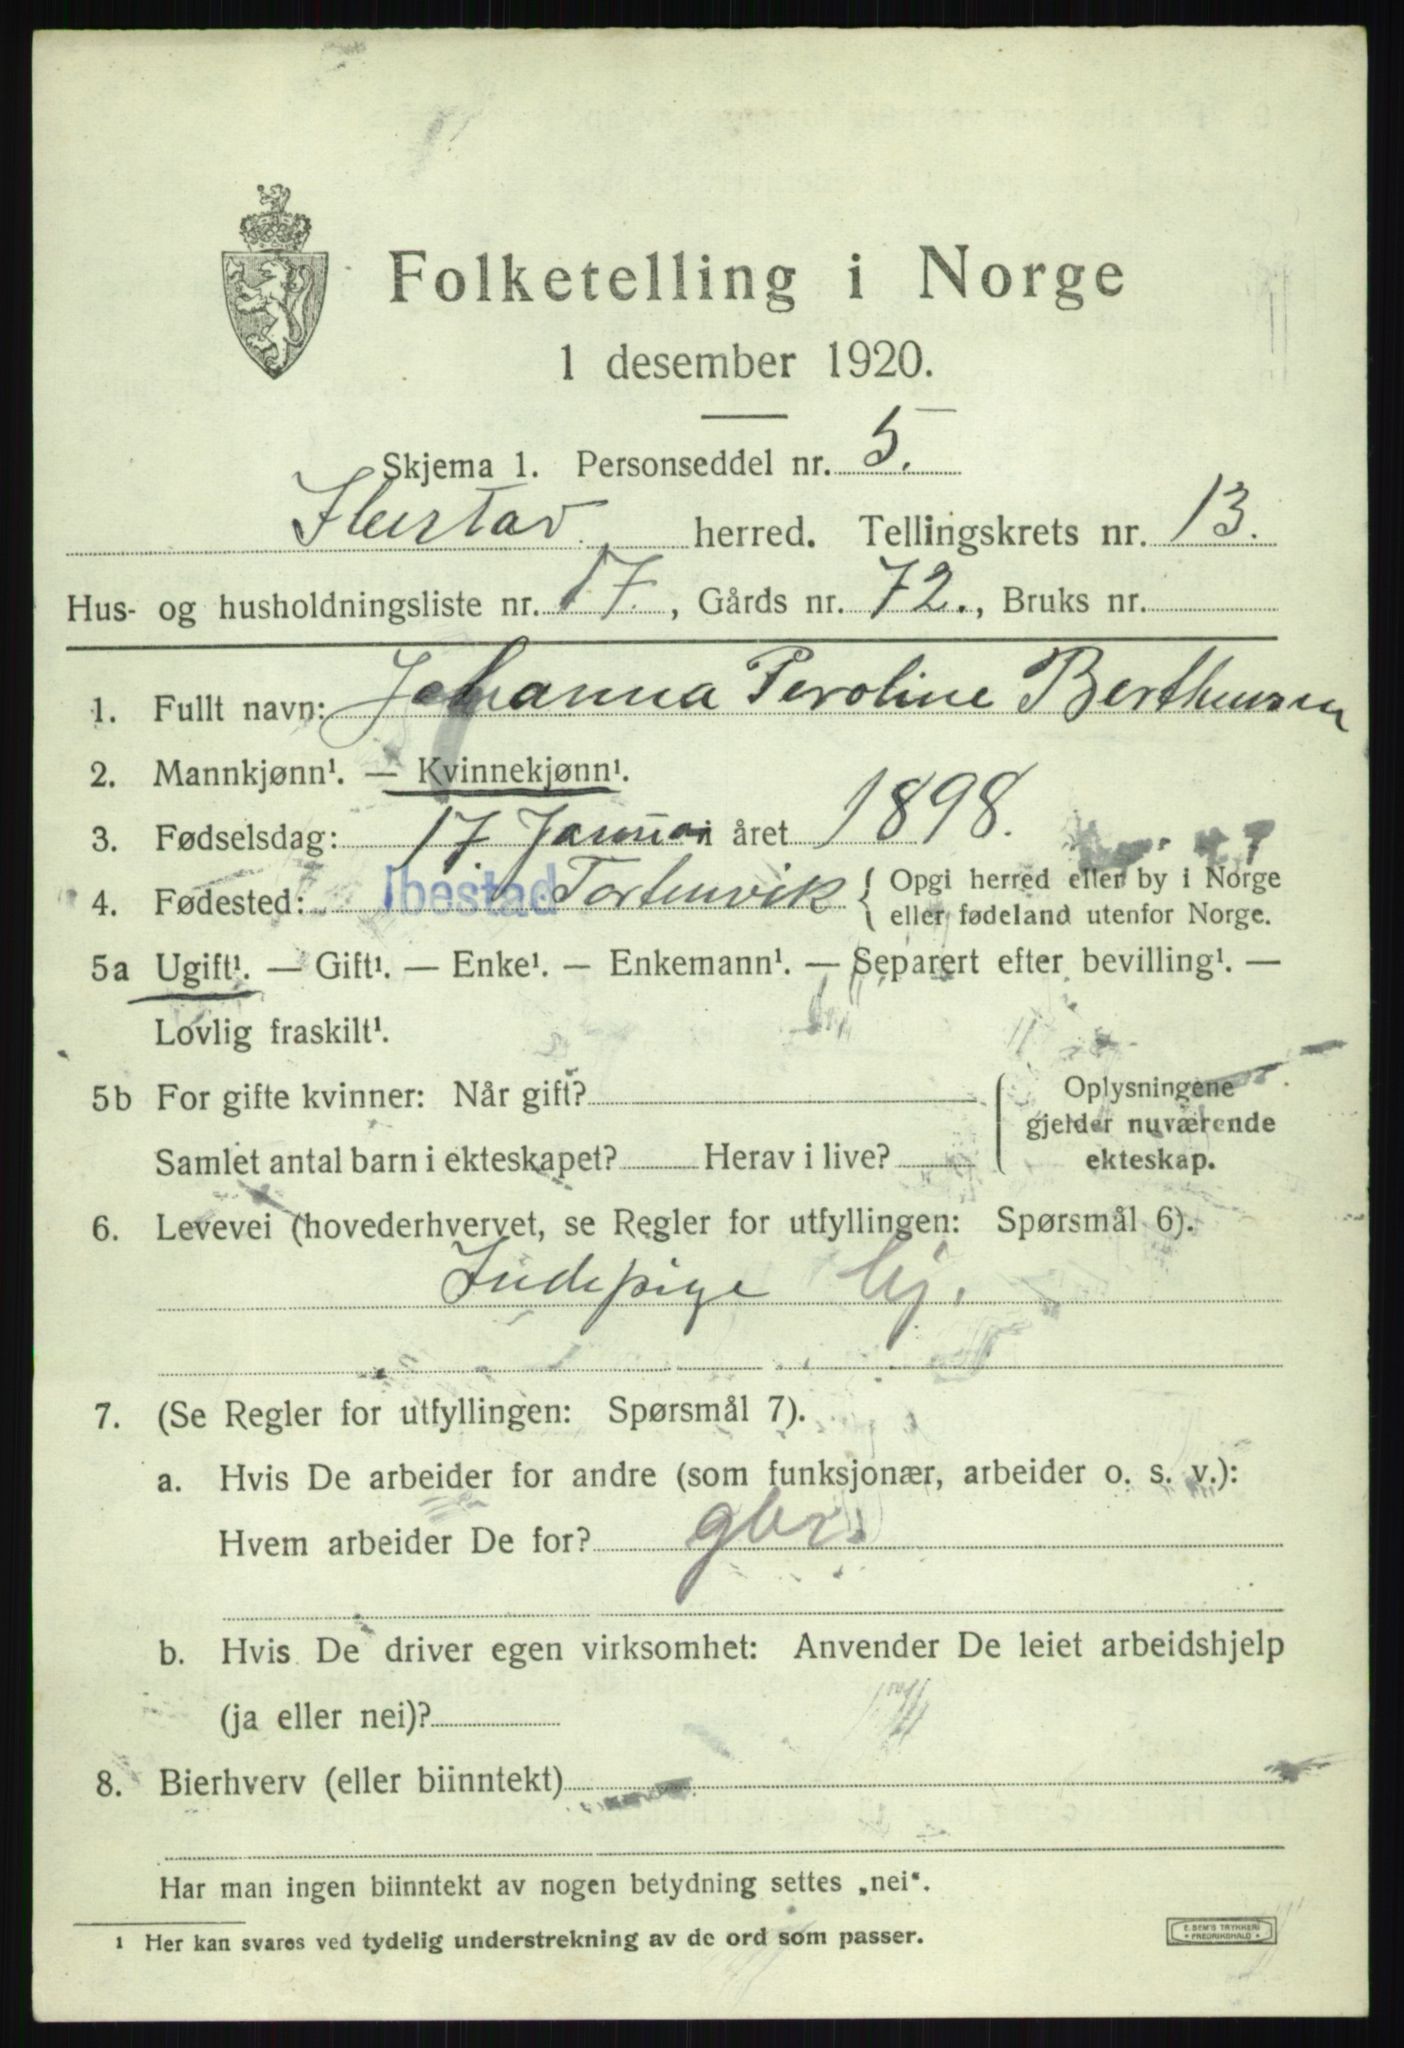 Folketelling i Norge
1 desember 1920.
Skjema 1. Personseddel nr. 5.
herred. Tellingskrets nr. 13.
Hus- og husholdningsliste nr. 17., Gårds nr. 72., Bruks nr.
1. Fullt navn: Johanna Peroline Berthinsen
2. Mannkjønn¹. — Kvinnekjønn¹.
3. Fødselsdag: 17. Januar i året 1898.
4. Fødested: Ibestad Tortenvik { Opgi herred eller by i Norge
eller fødeland utenfor Norge.
5a Ugift¹. — Gift¹. — Enke¹. — Enkemann¹. — Separert efter bevilling¹. —
Lovlig fraskilt¹.
5b For gifte kvinner: Når gift? Oplysningene
gjelder nuværende
Samlet antal barn i ekteskapet? Herav i live? ekteskap.
6. Levevei (hovederhvervet, se Regler for utfyllingen: Spørsmål 6).
Indepige
7. (Se Regler for utfyllingen: Spørsmål 7).
a. Hvis De arbeider for andre (som funksjonær, arbeider o. s. v.):
Hvem arbeider De for? gbr.
b. Hvis De driver egen virksomhet: Anvender De leiet arbeidshjelp
(ja eller nei)?
8. Bierhverv (eller biinntekt)
Har man ingen biinntekt av nogen betydning settes „nei“.
¹ Her kan svares ved tydelig understrekning av de ord som passer.
E. SEM'S TRYKKERI
* FREDRIKSHALD *